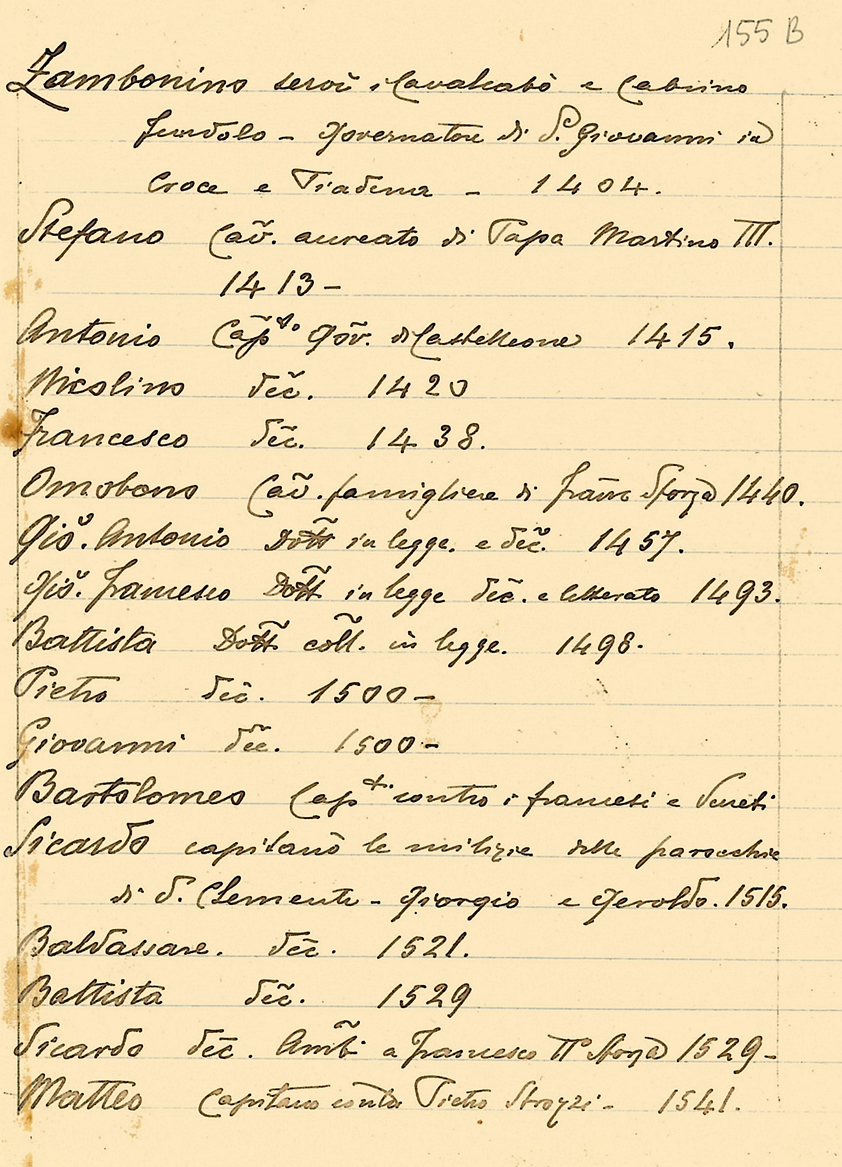 155 B
Zambonino servì i Cavalcabò e Cabrino
fundolo - Governatore di S. Giovanni in
Croce e Piadena - 1404.
Stefano Caṽ. aureato di Papa Martino III.
1413-
Antonio Cap̃to Goṽ. di Castelleone 1415.
Nicolino dec̃. 1420
Francesco dec̃. 1438.
Omobono Caṽ. famigliare di Franc̃ Sforza 1440.
Gio̊. Antonio Dot̃t in legge. e dec̃. 1457.
Gio̊. Francesco Dot̃t in legge dec̃. e letterato 1493.
Battista Dot̃t col̃l. in legge. 1498.
Pietro dec̃. 1500-
Giovanni dec̃. 1500-
Bartolomeo Cap contro i francesi e Veneti
Sicardo capitanò le milizie delle parocchie
di S. Clemente - Giorgio e Geroldo. 1515.
Baldassare. dec̃. 1521.
Battista dec̃. 1529
Sicardo dec̃. Amb̃ a Francesco II Sforza 1529-
Matteo Capitano contro Pietro Strozzi - 1541.